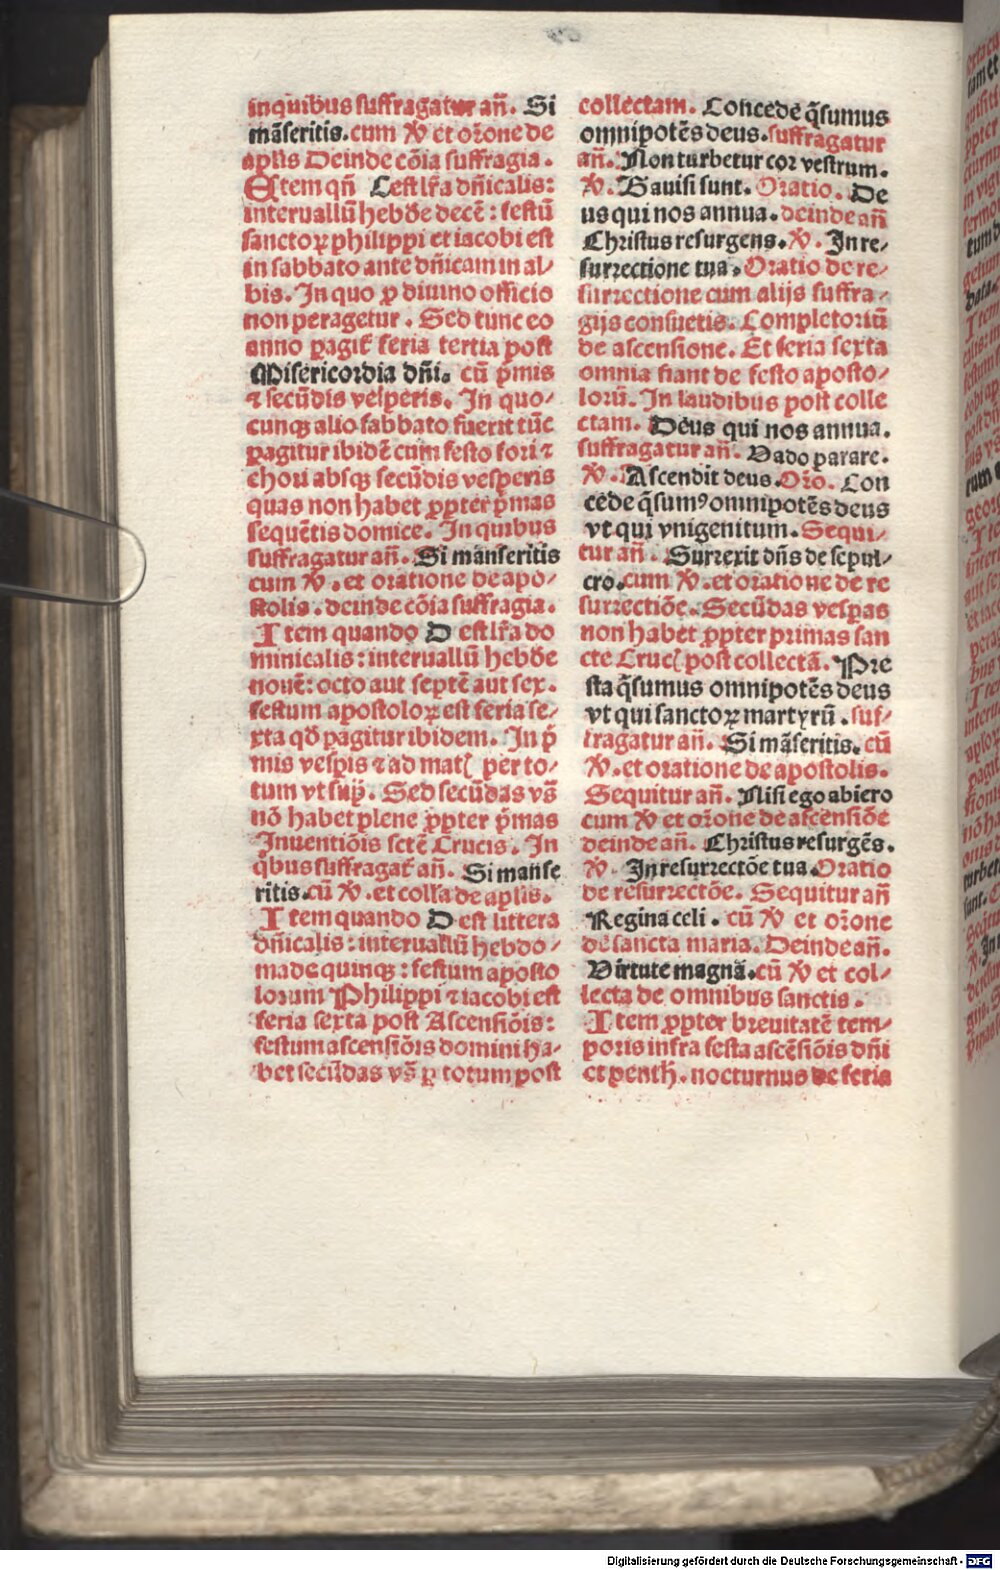 inquibus suffragatur an̄. Si
mãseritis. cum ꝟ et or̃one de
apl̃is Deinde cõia suffragia.
Item qñ C est lr̃a dñicalis:
interuallũ hebd̃e decẽ: festũ
sanctoꝝ philippi et iacobi est
in sabbato ante dñicam in al⸗
bis. In quo ꝓ diuino officio
non peragetur. Sed tunc eo
anno ꝑagit̃ feria tertia post
Misericordia dñi. cũ p̃mis
⁊ secũdis vesperis. In quo⸗
cunqꝫ alio sabbato fuerit tũc
ꝑagitur ibidẽ cum festo fori ⁊
chori absqꝫ secũdis vesperis
quas non habet ꝓpter p̃mas
sequẽtis domice. In quibus
suffragatur an̄. Si manseritis
cum ꝟ. et oratione de apo⸗
stolis. deinde cõia suffragia.
Item quando D est lr̃a do
minicalis: interuallũ hebd̃e
nouẽ: octo aut septẽ aut sex.
festum apostoloꝝ est feria se⸗
xta qď ꝑagitur ibidem. In p̃
mis vesꝑis ⁊ ad matꝭ per to⸗
tum vt sup̃. Sed secũdas vs̃
nõ habet plene ꝓpter p̃mas
Inuentiõis sctẽ Crucis. In
q̃bus suffragat̃ an̄. Si manse
ritis. cũ ꝟ. et coll̃a de apl̃is.
Item quando D est littera
dñicalis: interuallũ hebdo⸗
made quinqꝫ: festum aposto
lorum Philippi ⁊ iacobi est
feria sexta post Ascensiõis:
festum ascensiõis domini ha⸗
bet secũdas vs̃ ꝑ totum post
collectam. Concede q̃sumus
omnipotẽs deus. suffragatur
an̄. Non turbetur cor vestrum.
ꝟ. Gauisi sunt. Oratio. De
us qui nos annua. deinde an̄
Christus resurgens. ꝟ. In re⸗
surrectione tua. Oratio de re⸗
surrectione cum alijs suffra⸗
gijs consuetis. Completoriũ
de ascensione. Et feria sexta
omnia fiant de festo aposto⸗
lorũ. In laudibus post colle
ctam. Deus qui nos annua.
suffragatur an̄. Vado parare.
ꝟ. Ascendit deus. Or̃o. Con
cede q̃sumꝰ omnipotẽs deus
vt qui vnigenitum. Sequi⸗
tur an̄. Surrexit dñs de sepul⸗
cro. cum ꝟ. et oratione de re
surrectiõe. Secũdas vesꝑas
non habet ꝓpter primas san
cte Crucꝭ post collectã. Pre
sta q̃sumus omnipotẽs deus
vt qui sanctoꝝ martyrũ. suf⸗
fragatur an̄. Si mãseritis. cũ
ꝟ. et oratione de apostolis.
Sequitur an̄. Nisi ego abiero
cum ꝟ et or̃one de ascensiõe
deinde an̄. Christus resurgẽs.
ꝟ. In resurrectõe tua. Oratio
de resurrectõe. Sequitur an̄
Regina celi. cũ ꝟ et or̃one
de sancta maria. Deinde an̄.
Virtute magnã. cũ ꝟ et col⸗
lecta de omnibus sanctis.
Item ꝓpter breuitatẽ tem⸗
poris infra festa ascẽsiõis dñi
et penth. nocturnus de feria
Digitalisierung gefördert durch die Deutsche Forschungsgemeinschaft - DFG